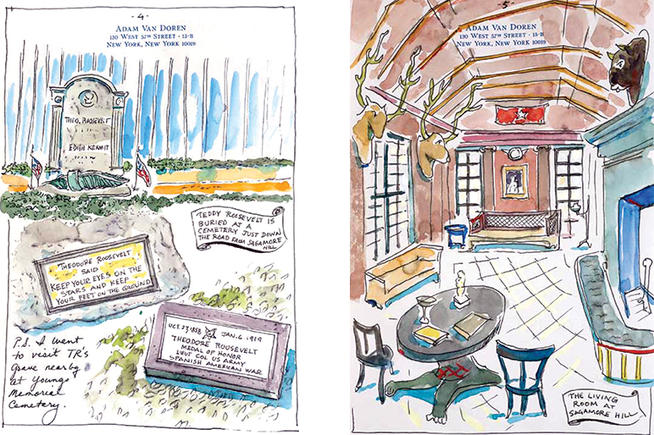 - 4 -
ADAM VAN DOREN
130 WEST 57TH STREET · 13-B
NEW YORK, NEW YORK 10019
THEO. ROOSEVELT
EDITH KERMIT
TEDDY ROOSEVELT IS
BURIED AT A
CEMETERY JUST DOWN
THE ROAD FROM SAGAMORE
HILL
THEODORE ROOSEVELT
SAID
KEEP YOUR EYES ON THE
STARS AND KEEP
YOUR FEET ON THE GROUND
OCT 27, 1858 JAN. 6, 1919
THEODORE ROOSEVELT
MEDAL OF HONOR
LIEUT COL US ARMY
SPANISH AMERICAN WAR
P.S. I went
to visit TR's
grave nearby
at Youngs
Memorial
Cemetery.
- 5 -
ADAM VAN DOREN
130 WEST 57TH STREET · 13-B
NEW YORK, NEW YORK 10019
THE LIVING
ROOM AT
SAGAMORE HILL